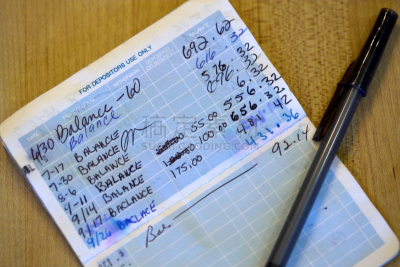 FOR DEPOSITORS USE ONLY
4/30 Balance -60 692.62
Balance 616.32
7-17 BALANCE 576.32
7-30 BALANCE 276.32
8-4 BALANCE 55.00 556.32
9-11 BALANCE 100.00 656.32
9/14 BALANCE 175.00 481.42
9/17 BALANCE 431.36
9/26 BALACLE 92.14
Bal